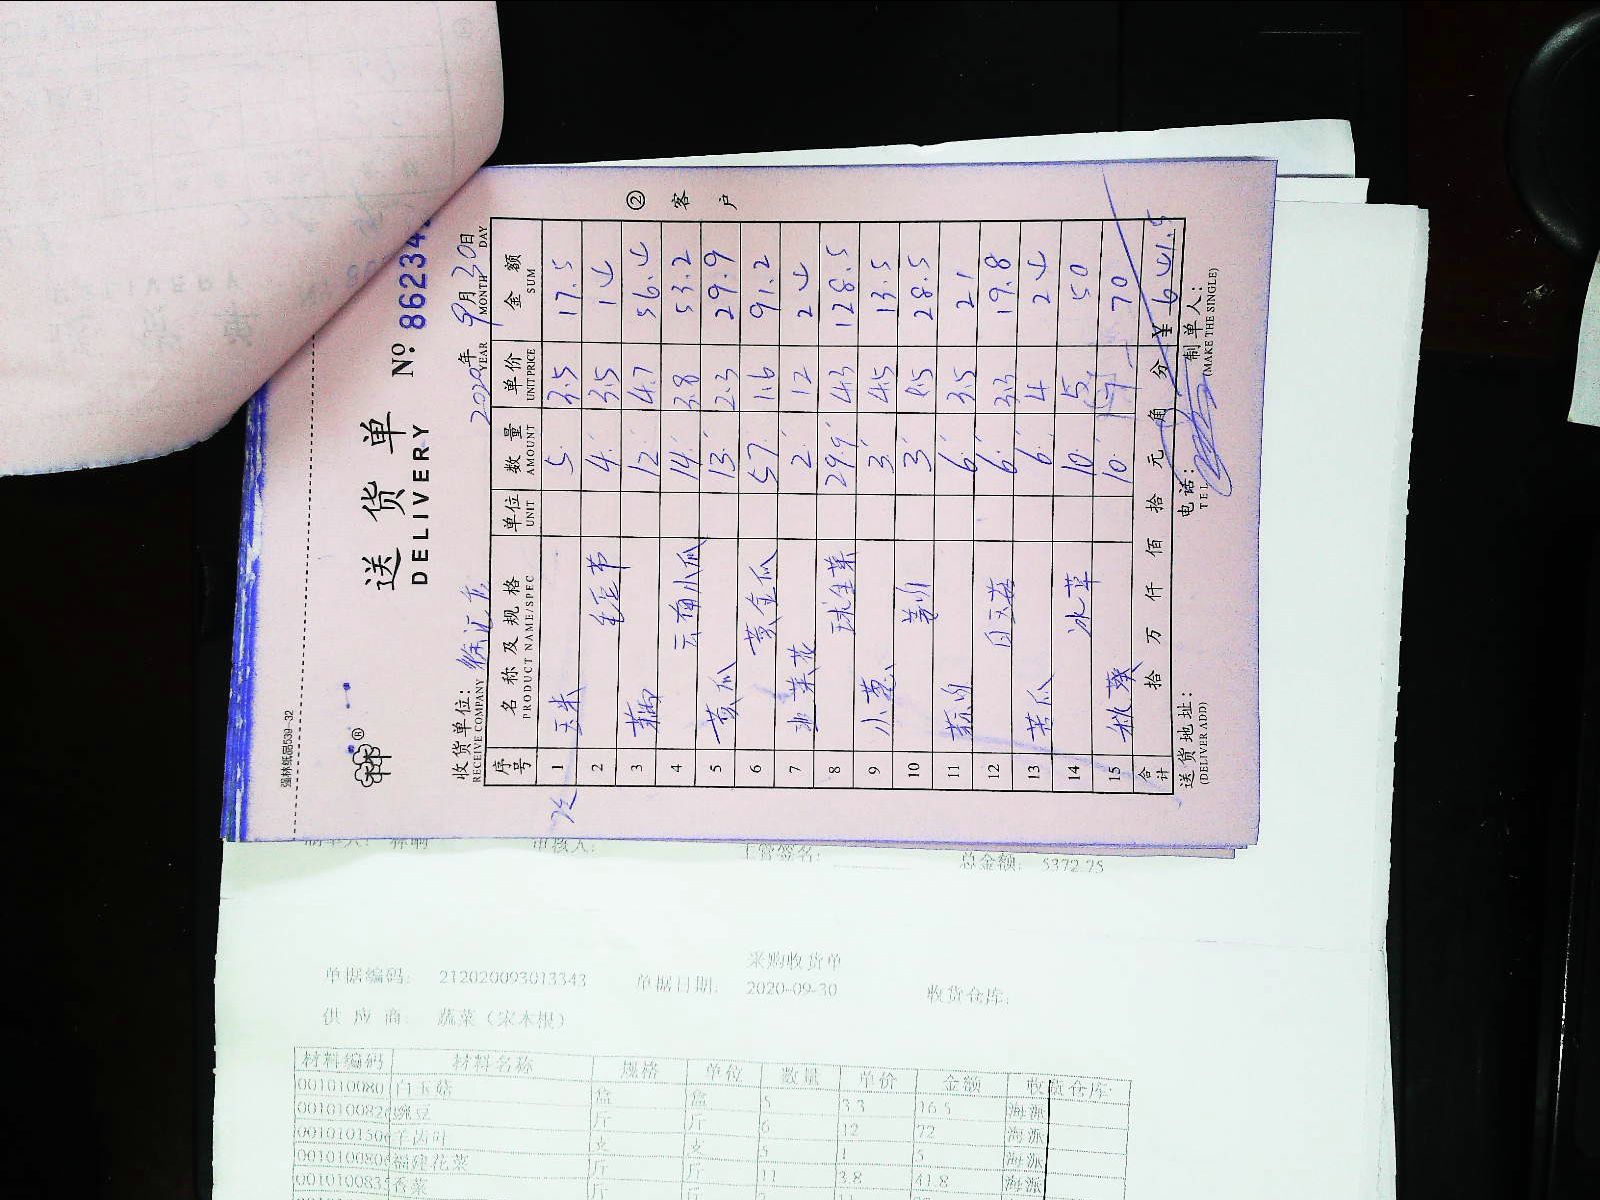 强林纸品539-32
送货单
DELIVERY
No 86234
收货单位: 徐汇店
RECEIVE COMPANY
2020年 9月 30日
YEAR MONTH DAY
② 客户
序号 名称及规格 单位 数量 单价 金额
PRODUCT NAME/SPEC UNIT AMOUNT UNIT PRICE SUM
1 玉米 5 3.5 17.5
2 毛豆节 4 3.5 14
3 莲藕 12 4.7 56.4
4 云南小瓜 14 3.8 53.2
5 黄瓜 13 2.3 29.9
6 黄金瓜 57 1.6 91.2
7 韭菜花 2 12 24
8 球生菜 29.9 4.3 128.5
9 小葱 3 4.5 13.5
10 3 9.5 28.5
11 蒜肉 6 3.5 21
12 6 3.3 19.8
13 苦瓜 6 4 24
14 冰草 10 5 50
15 秋葵 10 7 70
合计 拾 万 仟 佰 拾 元 角 分 ¥ 641.5
送货地址:
(DELIVER ADD)
电话:
TEL
制单人:
(MAKE THE SINGLE)
审核人: 主管签名: 总金额: 5372.75
采购收货单
单据编码: 212020093013343 单据日期: 2020-09-30 收货仓库:
供应商: 蔬菜(宋本根)
材料编码 材料名称 规格 单位 数量 单价 金额 收货仓库
001010080 白玉菇 盒 盒 5 3.3 16.5 海派
001010082 豌豆 斤 斤 6 12 72 海派
001010150 支 支 5 1 5 海派
001010080 福建花菜 斤 斤 11 3.8 41.8 海派
001010083 香菜 斤 斤